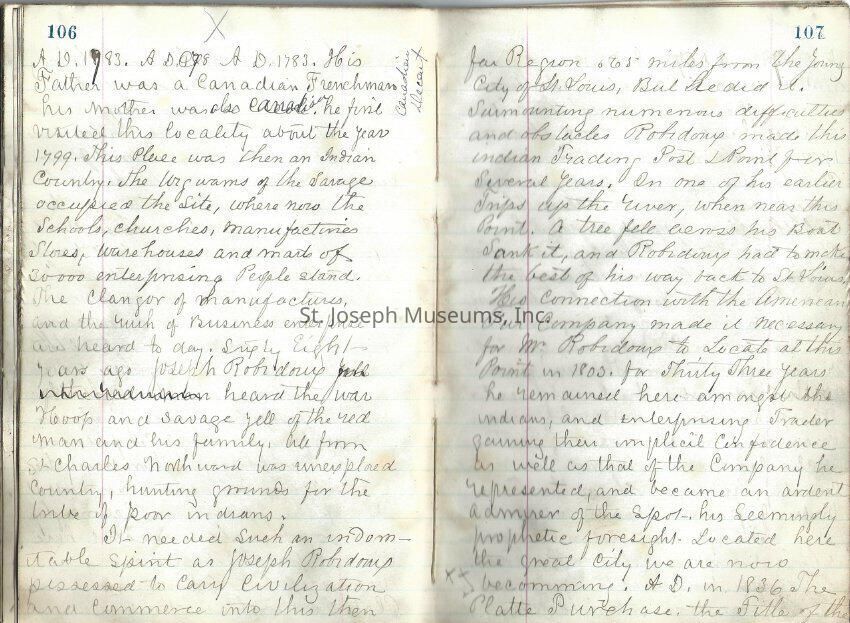 106
A D. 1983. A D. 178 A D. 1783. His
Father was a Canadian Frenchman
Canadian
Decent
his Mother was also Canadian. he first
visited this locality about the year
1799. This Place was then an Indian
Country. The Wigwams of the Savage
occupied the Site, where now the
Schools, churches, manufactories
Stores, warehouses and marts of
30000 enterprising People stand.
The clangor of manufactures,
and the rush of Business enterprise
are heard to day. Sixty Eight
years ago Joseph Robidoux
heard the war
Hoop and Savage yell of the red
man and his family. all from
St Charles Northward was unexplored
Country, hunting grounds for the
tribe of poor indians.
It needed such an indom-
itable spirit as Joseph Robidoux
possessed to Carry Civilization
and Commerce into this then
107
far Region 565 miles from the Young
City of St Louis, But he did it.
Surmounting numerous difficulties
and obstacles Robidoux made this
indian Trading Post & Point for
Several Years. On one of his earlier
trips up the river, when near this
Point. A tree fell across his Boat
Sank it, and Robidoux had to make
the best of his way back to St Louis,
His Connection with the American
Fur Company made it necessary
for Mr Robidoux to Locate at this
Point in 1803. for Thirty Three years
he remained here amongst the
indians, and enterprising Trader
gaining their implicit Confidence
as well as that of the Company he
represented, and became an ardent
admirer of the spot. his Seemingly
prophetic foresight. Located here
the great City we are now
becomming. A D. in 1836 The
Platte Purchase. the Title of the
St. Joseph Museums, Inc.